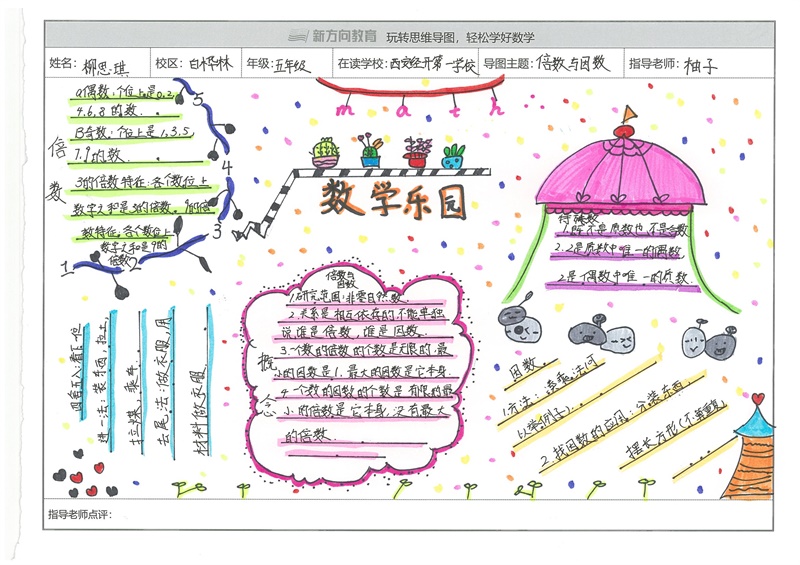 新方向教育 玩转思维导图，轻松学好数学
姓名：柳思琪 校区：白桦林 年级：五年级 在读学校：西安经开第一学校 导图主题：倍数与因数 指导老师：柚子
倍数
A偶数：个位上是0,2,
4,6,8的数.
B奇数：个位上是1,3,5,
7,9的数.
3的倍数特征：各个数位上
数字之和是3的倍数. 9的倍
数特征：各个数位上
数字之和是9的
倍数
1 2 3 4 5
math
数学乐园
特殊数
1.既不是质数也不是合数
2.2是质数中唯一的偶数
2是偶数中唯一的质数
概念
倍数与
因数
1.研究范围：非零自然数.
2.关系是相互依存的不能单独
说谁是倍数，谁是因数.
3.一个数的倍数的个数是无限的.最
小的因数是1.最大的因数是它本身.
4.一个数的因数的个数是有限的最
小的倍数是它本身.没有最大
的倍数.
四舍五入：看下一位
进一法：装东西，拉土，
拉煤，乘车
去尾法：做衣服，用
材料做衣服
因数.
1.方法：乘法
2.找因数的应用：分装东西，
摆长方形(不算重复)
指导老师点评：